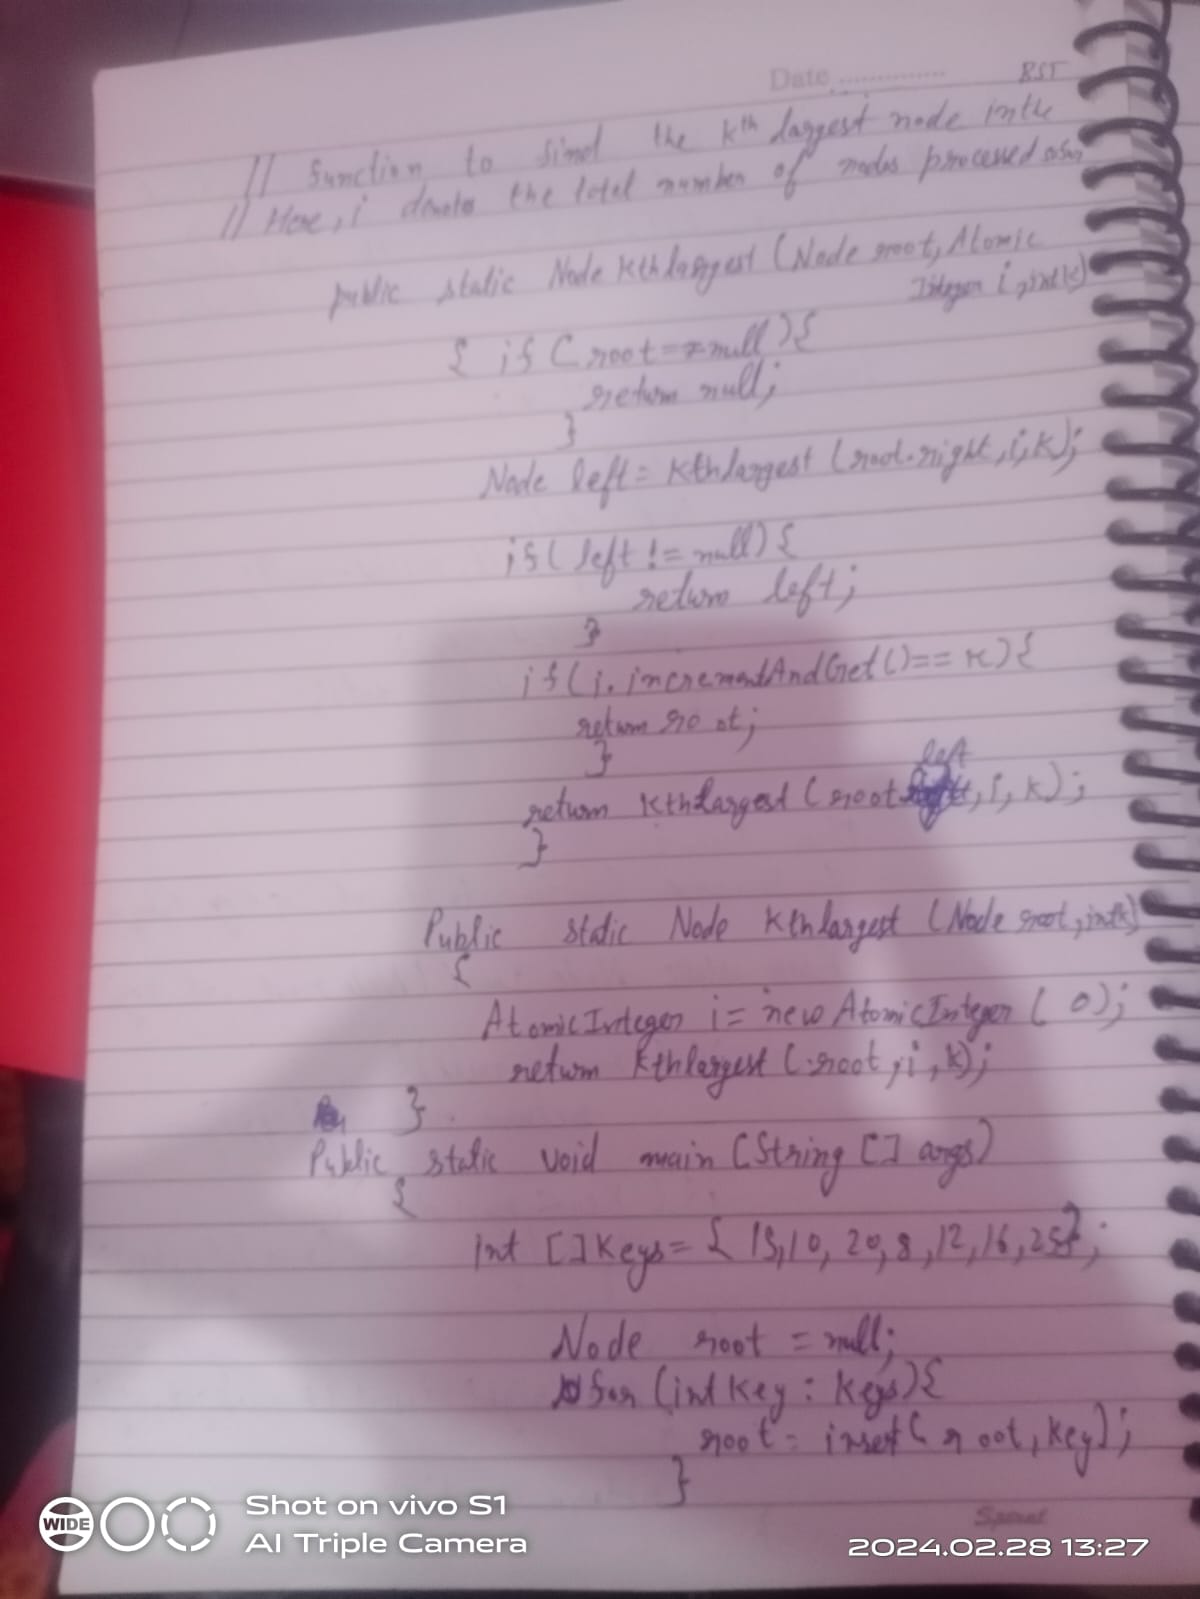 Date ............... BST
// function to find the kth largest node in the
// Here, i denotes the total number of nodes processed so far
public static Node kthlargest (Node root, Atomic
Integer i, int k)
{ if (root == null) {
return null;
}
Node left = kthlargest (root.right, i, k);
if ( left != null) {
return left;
}
if (i. incrementAndGet () == k) {
return root;
}
left
return kthLargest (root , i, k);
}
Public static Node kthlargest (Node root, int k)
{
AtomicInteger i = new AtomicInteger ( 0);
return kthlargest (root, i, k);
}
Public static void main (String [] args)
{
Int [] Keys = { 15, 10, 20, 8, 12, 16, 25};
Node root = null;
for (int key : keys) {
root = insert ( root, key);
}
Spiral
WIDE
Shot on vivo S1
AI Triple Camera
2024.02.28 13:27